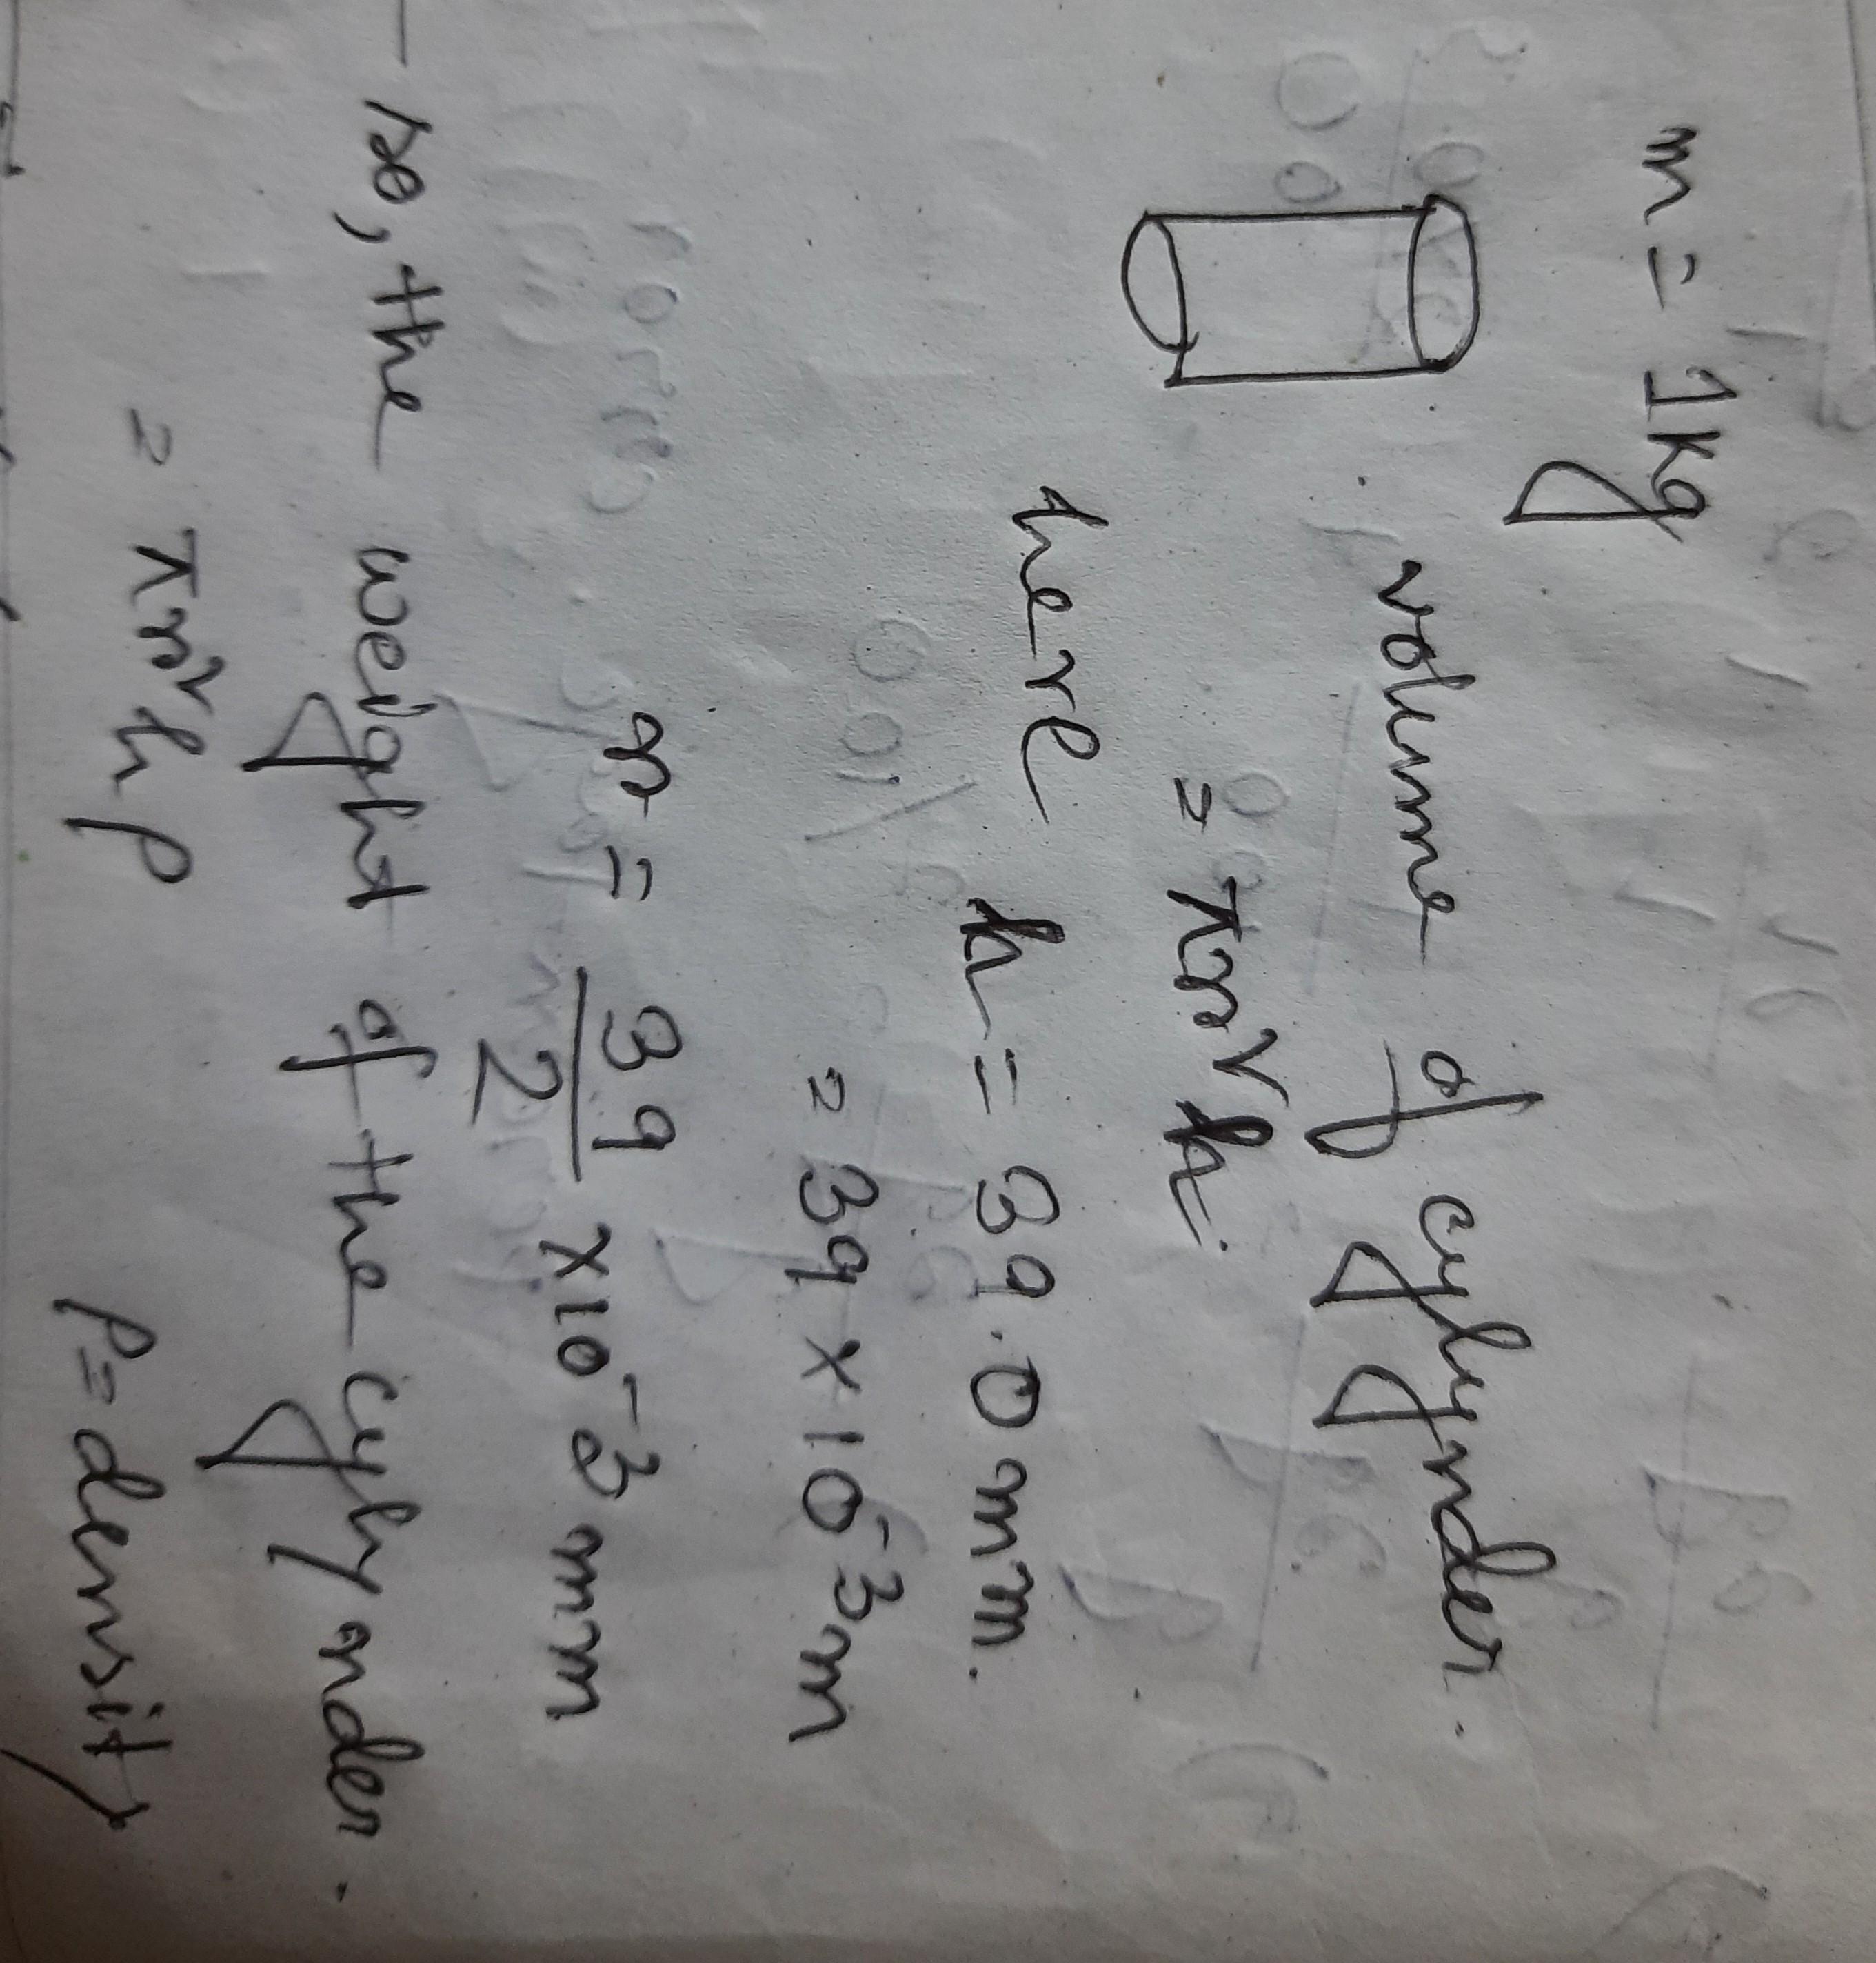 m = 1kg
volume of cylynder.
= πr²h.
here h = 39.0 mm.
= 39 × 10⁻³ m
r = 39/2 × 10⁻³ mm
so, the weight of the cylynder.
= πr²hρ ρ = density